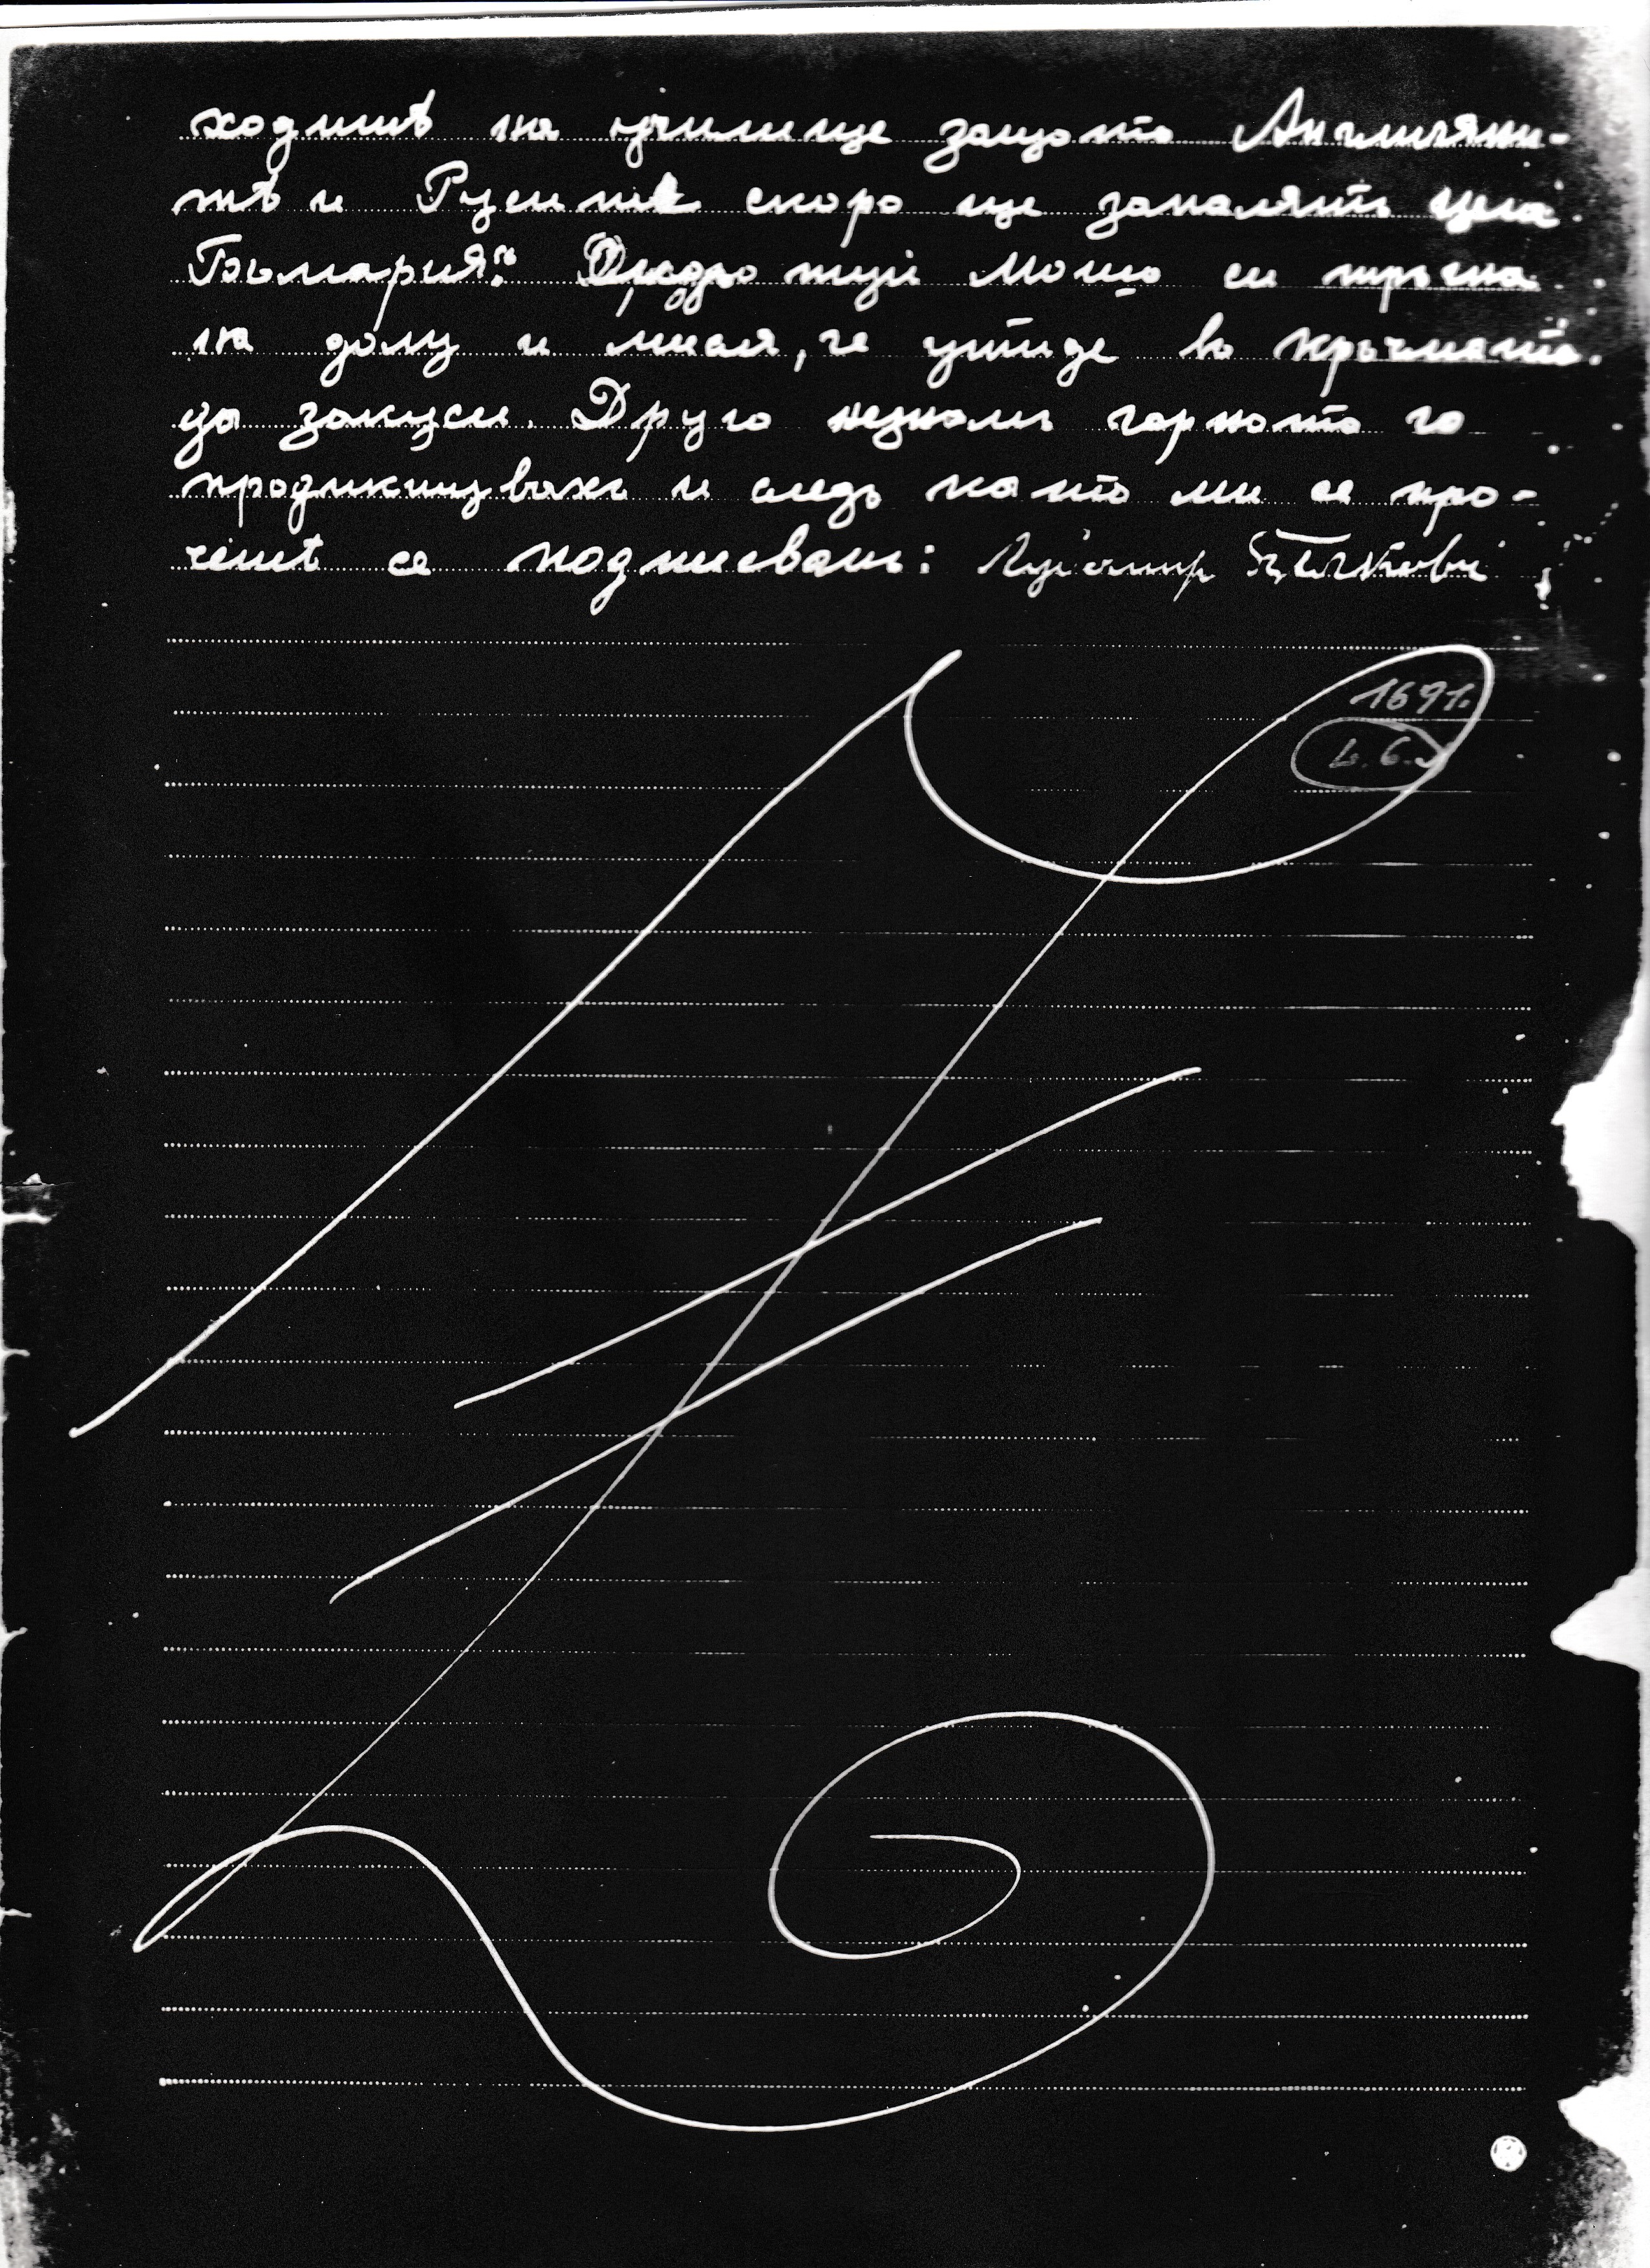 ходишѣ на училище защото Англичани-
тѣ и Руситѣ скоро ще запалятъ цела
България." туй Мошо си тръгна
на долу и мисля, че утиде въ кръчмата
да закуси. Друго незнамъ горното го
продиктувахъ и следъ като ми се про-
чеитѣ се подписвамъ:
1691.